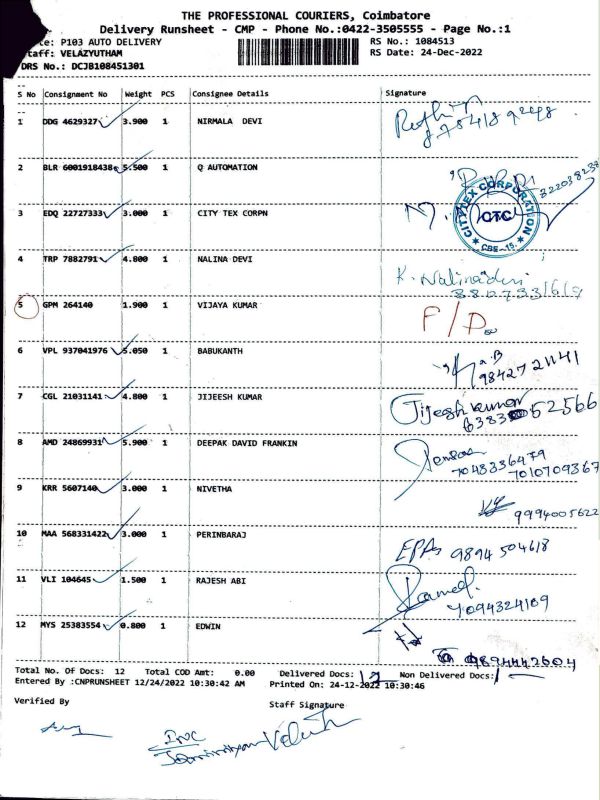 THE PROFESSIONAL COURIERS, Coimbatore
Delivery Runsheet - CMP - Phone No.:0422-3505555 - Page No.:1
te: P103 AUTO DELIVERY RS No.: 1084513
taff: VELAZYUTHAM RS Date: 24-Dec-2022
DRS No.: DCJB108451301
S No Consignment No Weight PCS Consignee Details Signature
1 DDG 4629327 3.900 1 NIRMALA DEVI
2 BLR 6001918438 5.500 1 Q AUTOMATION
3 EDQ 22727333 3.000 1 CITY TEX CORPN
CITY TEX CORPORATION
CTC
CBE-15.
4 TRP 7882791 4.800 1 NALINA DEVI K. Nalinadevi
5 GPM 264140 1.900 1 VIJAYA KUMAR F/D
6 VPL 937041976 5.050 1 BABUKANTH
98427 21141
7 CGL 21031141 4.800 1 JIJEESH KUMAR Jijeesh kumar
52566
8 AMD 24869931 5.900 1 DEEPAK DAVID FRANKIN
7048336479
7010709367
9 KRR 5607140 3.000 1 NIVETHA
9994005622
10 MAA 568331422 3.000 1 PERINBARAJ
9894 504618
11 VLI 104645 1.500 1 RAJESH ABI
7094324109
12 MYS 25383554 0.800 1 EDWIN
9894442604
Total No. Of Docs: 12 Total COD Amt: 0.00 Delivered Docs: Non Delivered Docs:
Entered By :CNPRUNSHEET 12/24/2022 10:30:42 AM Printed On: 24-12-2022 10:30:46
Verified By Staff Signature